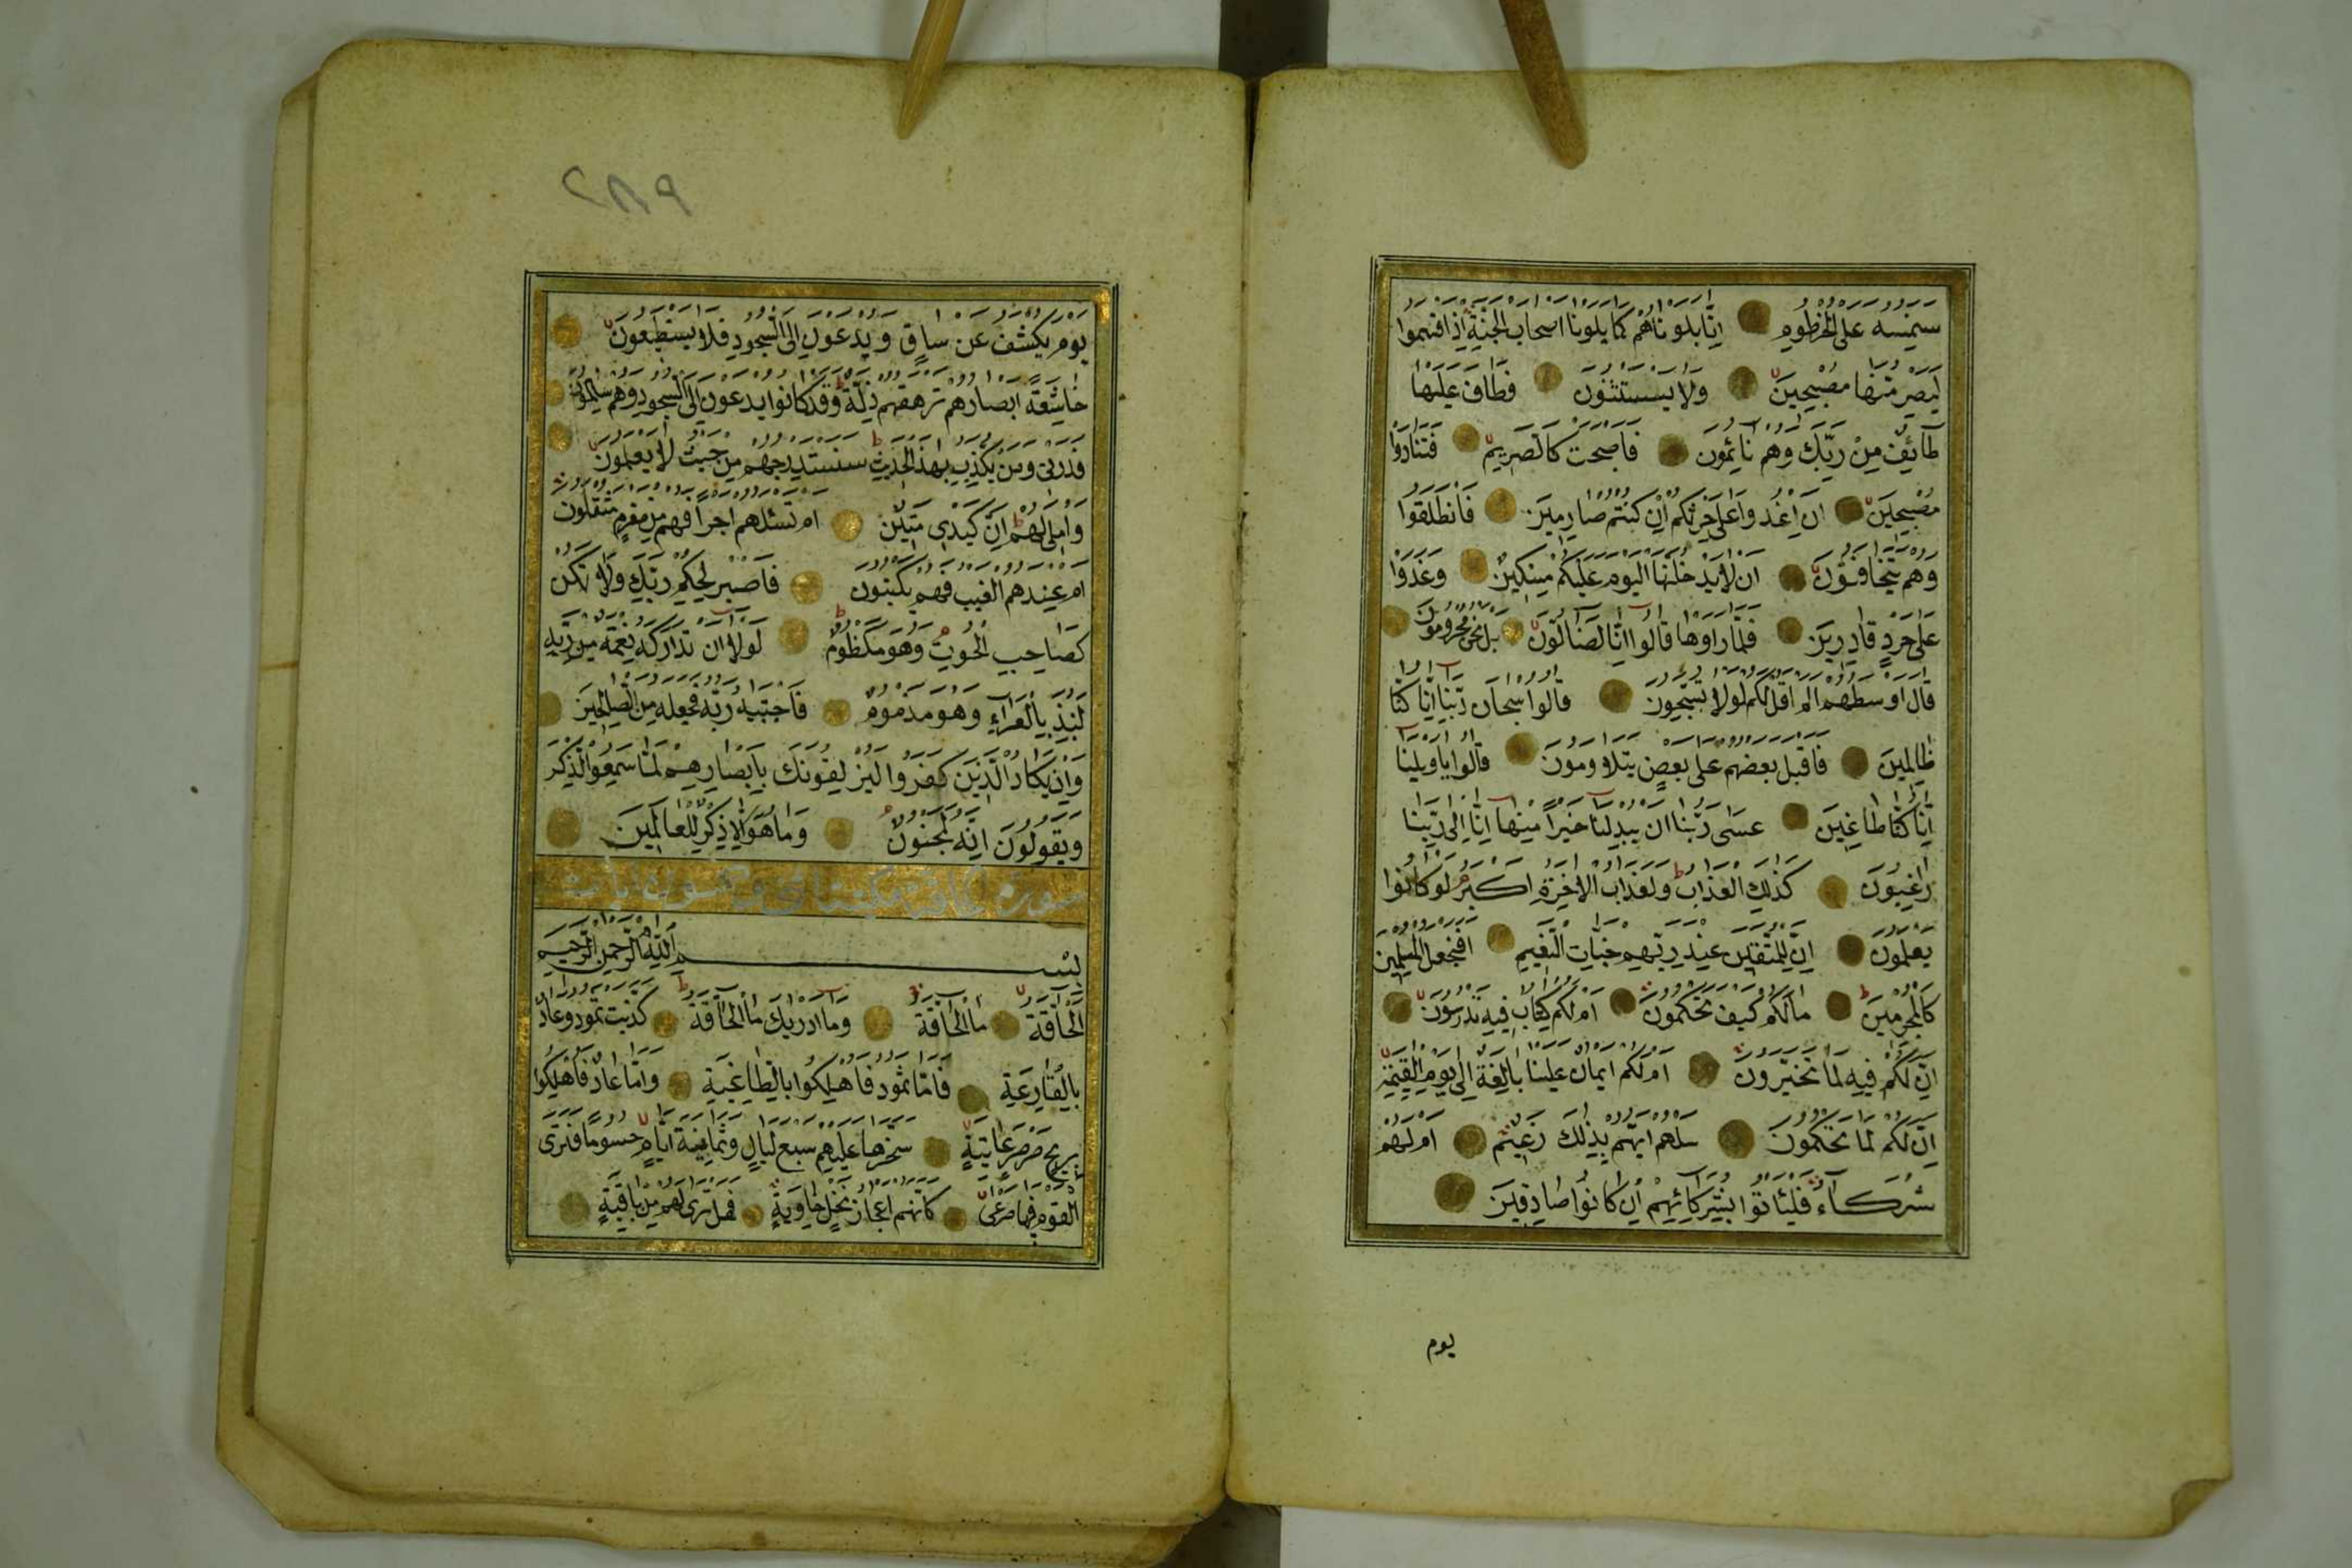 سنسمه على الخرطوم انا بلوناهم كما بلونا اصحاب الجنة اذ اقسموا
ليصرمنها مصبحين ولا يستثنون فطاف عليها
طآئف من ربك وهم نائمون فاصبحت كالصريم فتنادوا
مصبحين ان اغدوا على حرثكم ان كنتم صارمين فانطلقوا
وهم يتخافتون ان لا يدخلنها اليوم عليكم مسكين وغدوا
على حرد قادرين فلما راوها قالوا انا لضالون بل نحن محرومون
قال اوسطهم الم اقل لكم لولا تسبحون قالوا سبحان ربنا انا كنا
ظالمين فاقبل بعضهم على بعض يتلاومون قالوا ياويلنا
انا كنا طاغين عسى ربنا ان يبدلنا خيرا منها انا الى ربنا
راغبون كذلك العذاب ولعذاب الاخرة اكبر لو كانوا
يعلمون ان للمتقين عند ربهم جنات النعيم افنجعل المسلمين
كالمجرمين مالكم كيف تحكمون ام لكم كتاب فيه تدرسون
ان لكم فيه لما تخيرون ام لكم ايمان علينا بالغة الى يوم القيمة
ان لكم لما تحكمون سلهم ايهم بذلك زعيم ام لهم
شركآء فلياتوا بشركائهم ان كانوا صادقين
يوم
٢٨٩
يوم يكشف عن ساق ويدعون الى السجود فلا يستطيعون
خاشعة ابصارهم ترهقهم ذلة وقد كانوا يدعون الى السجود وهم سالمون
فذرني ومن يكذب بهذا الحديث سنستدرجهم من حيث لا يعلمون
واملى لهم ان كيدى متين ام تسئلهم اجرا فهم من مغرم مثقلون
ام عندهم الغيب فهم يكتبون فاصبر لحكم ربك ولا تكن
كصاحب الحوت وهو مكظوم لولا ان تداركه نعمة من ربه
لنبذ بالعرآء وهو مذموم فاجتبيه ربه فجعله من الصالحين
وان يكاد الذين كفروا ليزلقونك بابصارهم لما سمعوا الذكر
ويقولون انه لمجنون وما هو الا ذكر للعالمين
سورة الحاقة
بسم الله الرحمن الرحيم
الحآقة ما الحآقة وما ادريك ما الحآقة كذبت ثمود وعاد
بالقارعة فاما ثمود فاهلكوا بالطاغية واما عاد فاهلكوا
بريح صرصر عاتية سخرها عليهم سبع ليال وثمانية ايام حسوما فترى
القوم فيها صرعى كانهم اعجاز نخل خاوية فهل ترى لهم من باقية